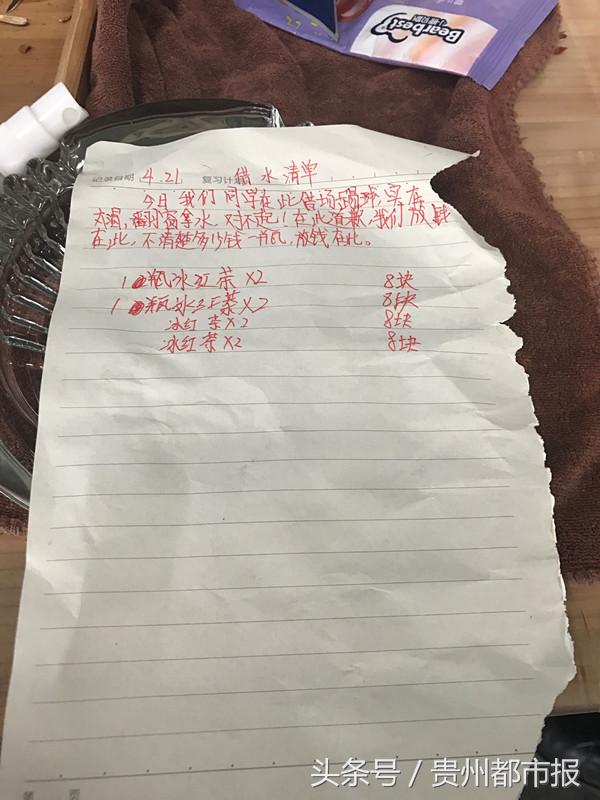 Bearbest
记录日期 4.21 复习计 借水清单
今日我们同学在此借场踢球,实在
太渴,翻窗拿水,对不起!在此道歉,我们放肆
在此,不清楚多少钱一瓶,放钱在此。
1瓶冰红茶×2 8块
1瓶冰红茶×2 8块
冰红茶×2 8块
冰红茶×2 8块
头条号/贵州都市报